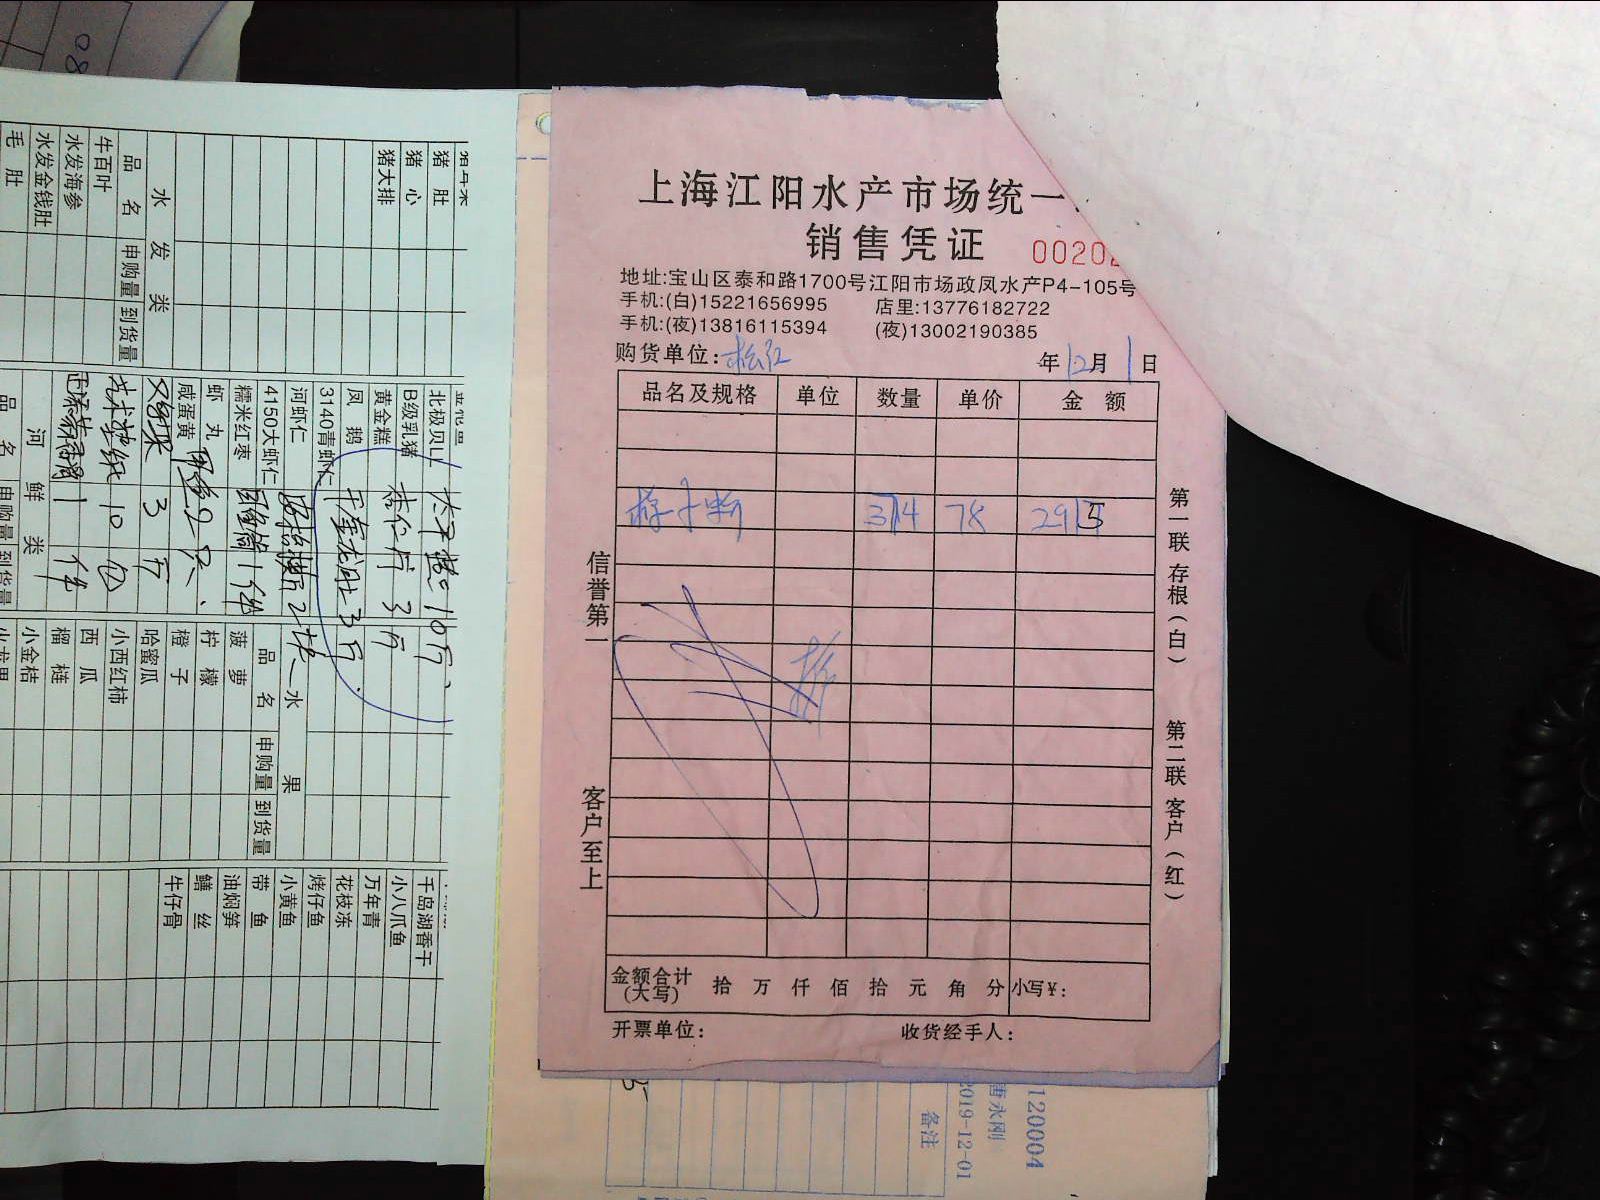 上海江阳水产市场统一
销售凭证
00202
地址:宝山区泰和路1700号江阳市场政凤水产P4-105号
手机:(白)15221656995 店里:13776181722
手机:(夜)13816115394 (夜)13002190385
购货单位:松江 年12月1日
品名及规格 单位 数量 单价 金 额
374 78 2915
信誉第一
客户至上
第一联 存根(白)
第二联 客户(红)
金额合计(大写) 拾 万 仟 佰 拾 元 角 分 小写¥:
开票单位: 收货经手人:
120004
唐永刚
2019-12-01
备注
08
猪 肚
猪 心
猪大排
水 发 类
品 名 申购量 到货量
牛百叶
水发海参
水发金钱肚
毛 肚
北极贝LL
B级乳猪
黄金糕
凤 鹅
3140青虾仁
河虾仁
4150大虾仁
糯米红枣
虾 丸
咸蛋黄
3斤
10包
1件
河 鲜 类
品 名 申购量 到货量
水 果
品 名 申购量 到货量
菠 萝
柠 檬
橙 子
哈蜜瓜
小西红柿
西 瓜
榴 梿
小金桔
千岛湖香干
小八爪鱼
万年青
花枝冻
烤仔鱼
小黄鱼
带 鱼
油焖笋
鳝 丝
牛仔骨